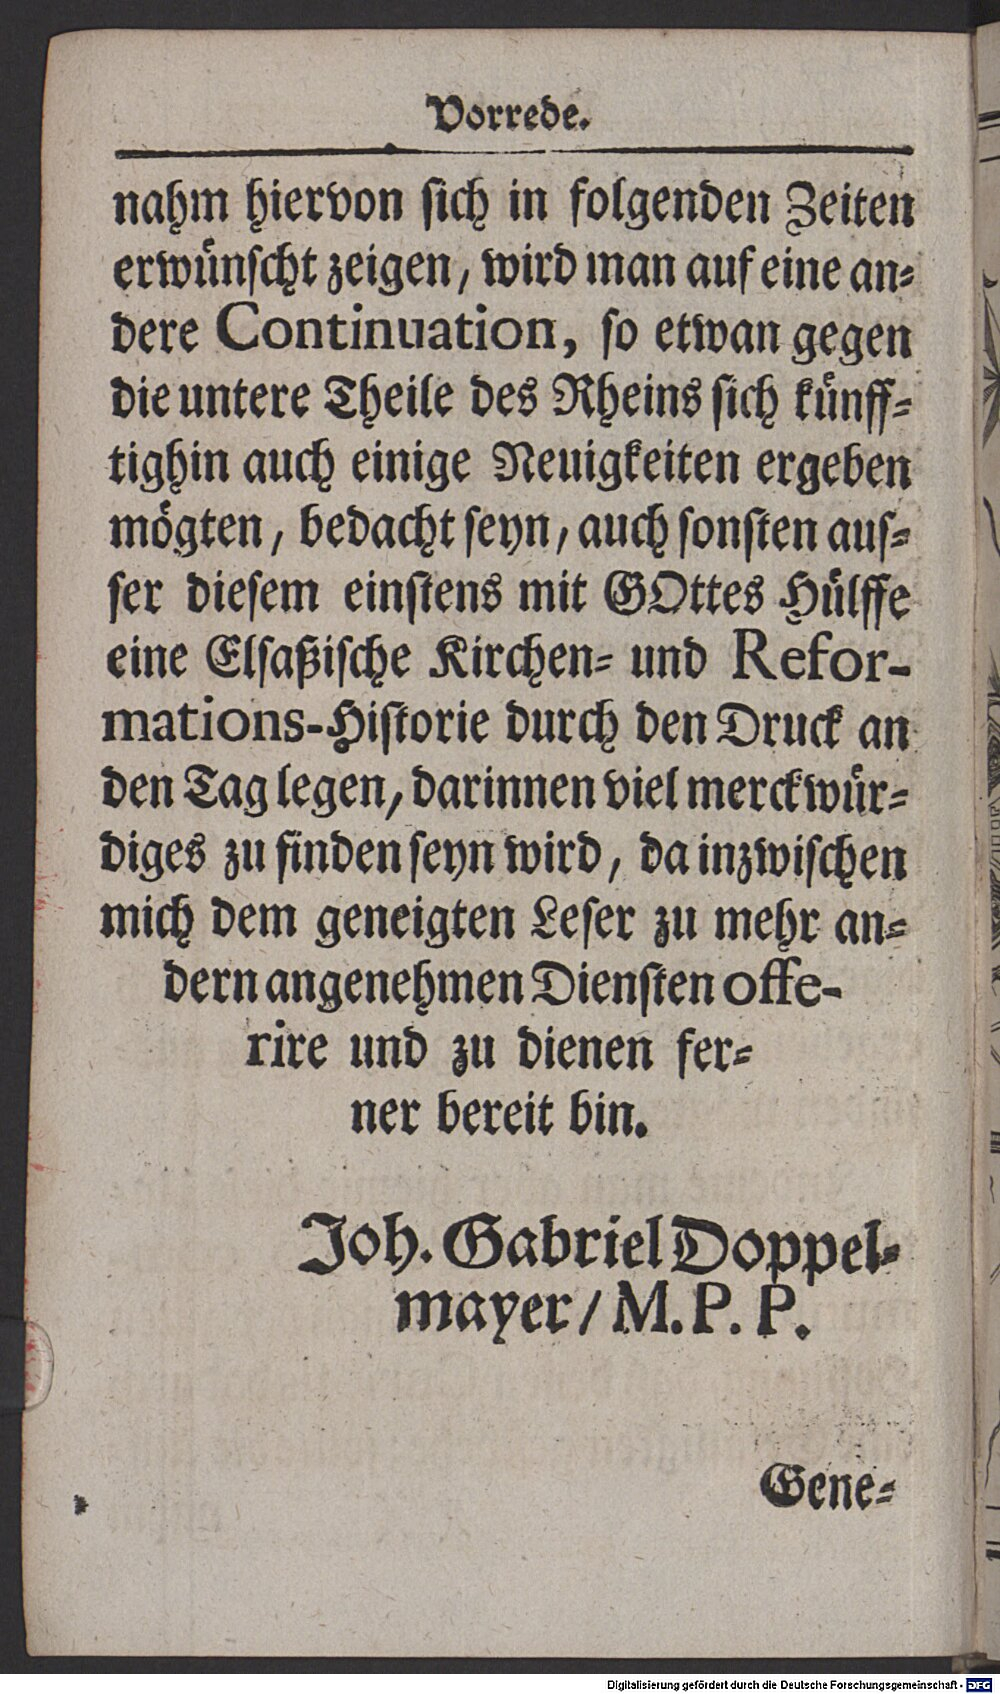 Vorrede.
nahm hiervon sich in folgenden Zeiten
erwünscht zeigen, wird man auf eine an-
dere Continuation, so etwan gegen
die untere Theile des Rheins sich künff-
tighin auch einige Neuigkeiten ergeben
mögten, bedacht seyn, auch sonsten aus-
ser diesem einstens mit GOttes Hülffe
eine Elsaßische Kirchen- und Refor-
mations-Historie durch den Druck an
den Tag legen, darinnen viel merckwür-
diges zu finden seyn wird, da inzwischen
mich dem geneigten Leser zu mehr an-
dern angenehmen Diensten offe-
rire und zu dienen fer-
ner bereit bin.
Joh. Gabriel Doppel-
mayer / M. P. P.
Gene-
Digitalisierung gefördert durch die Deutsche Forschungsgemeinschaft - DFG